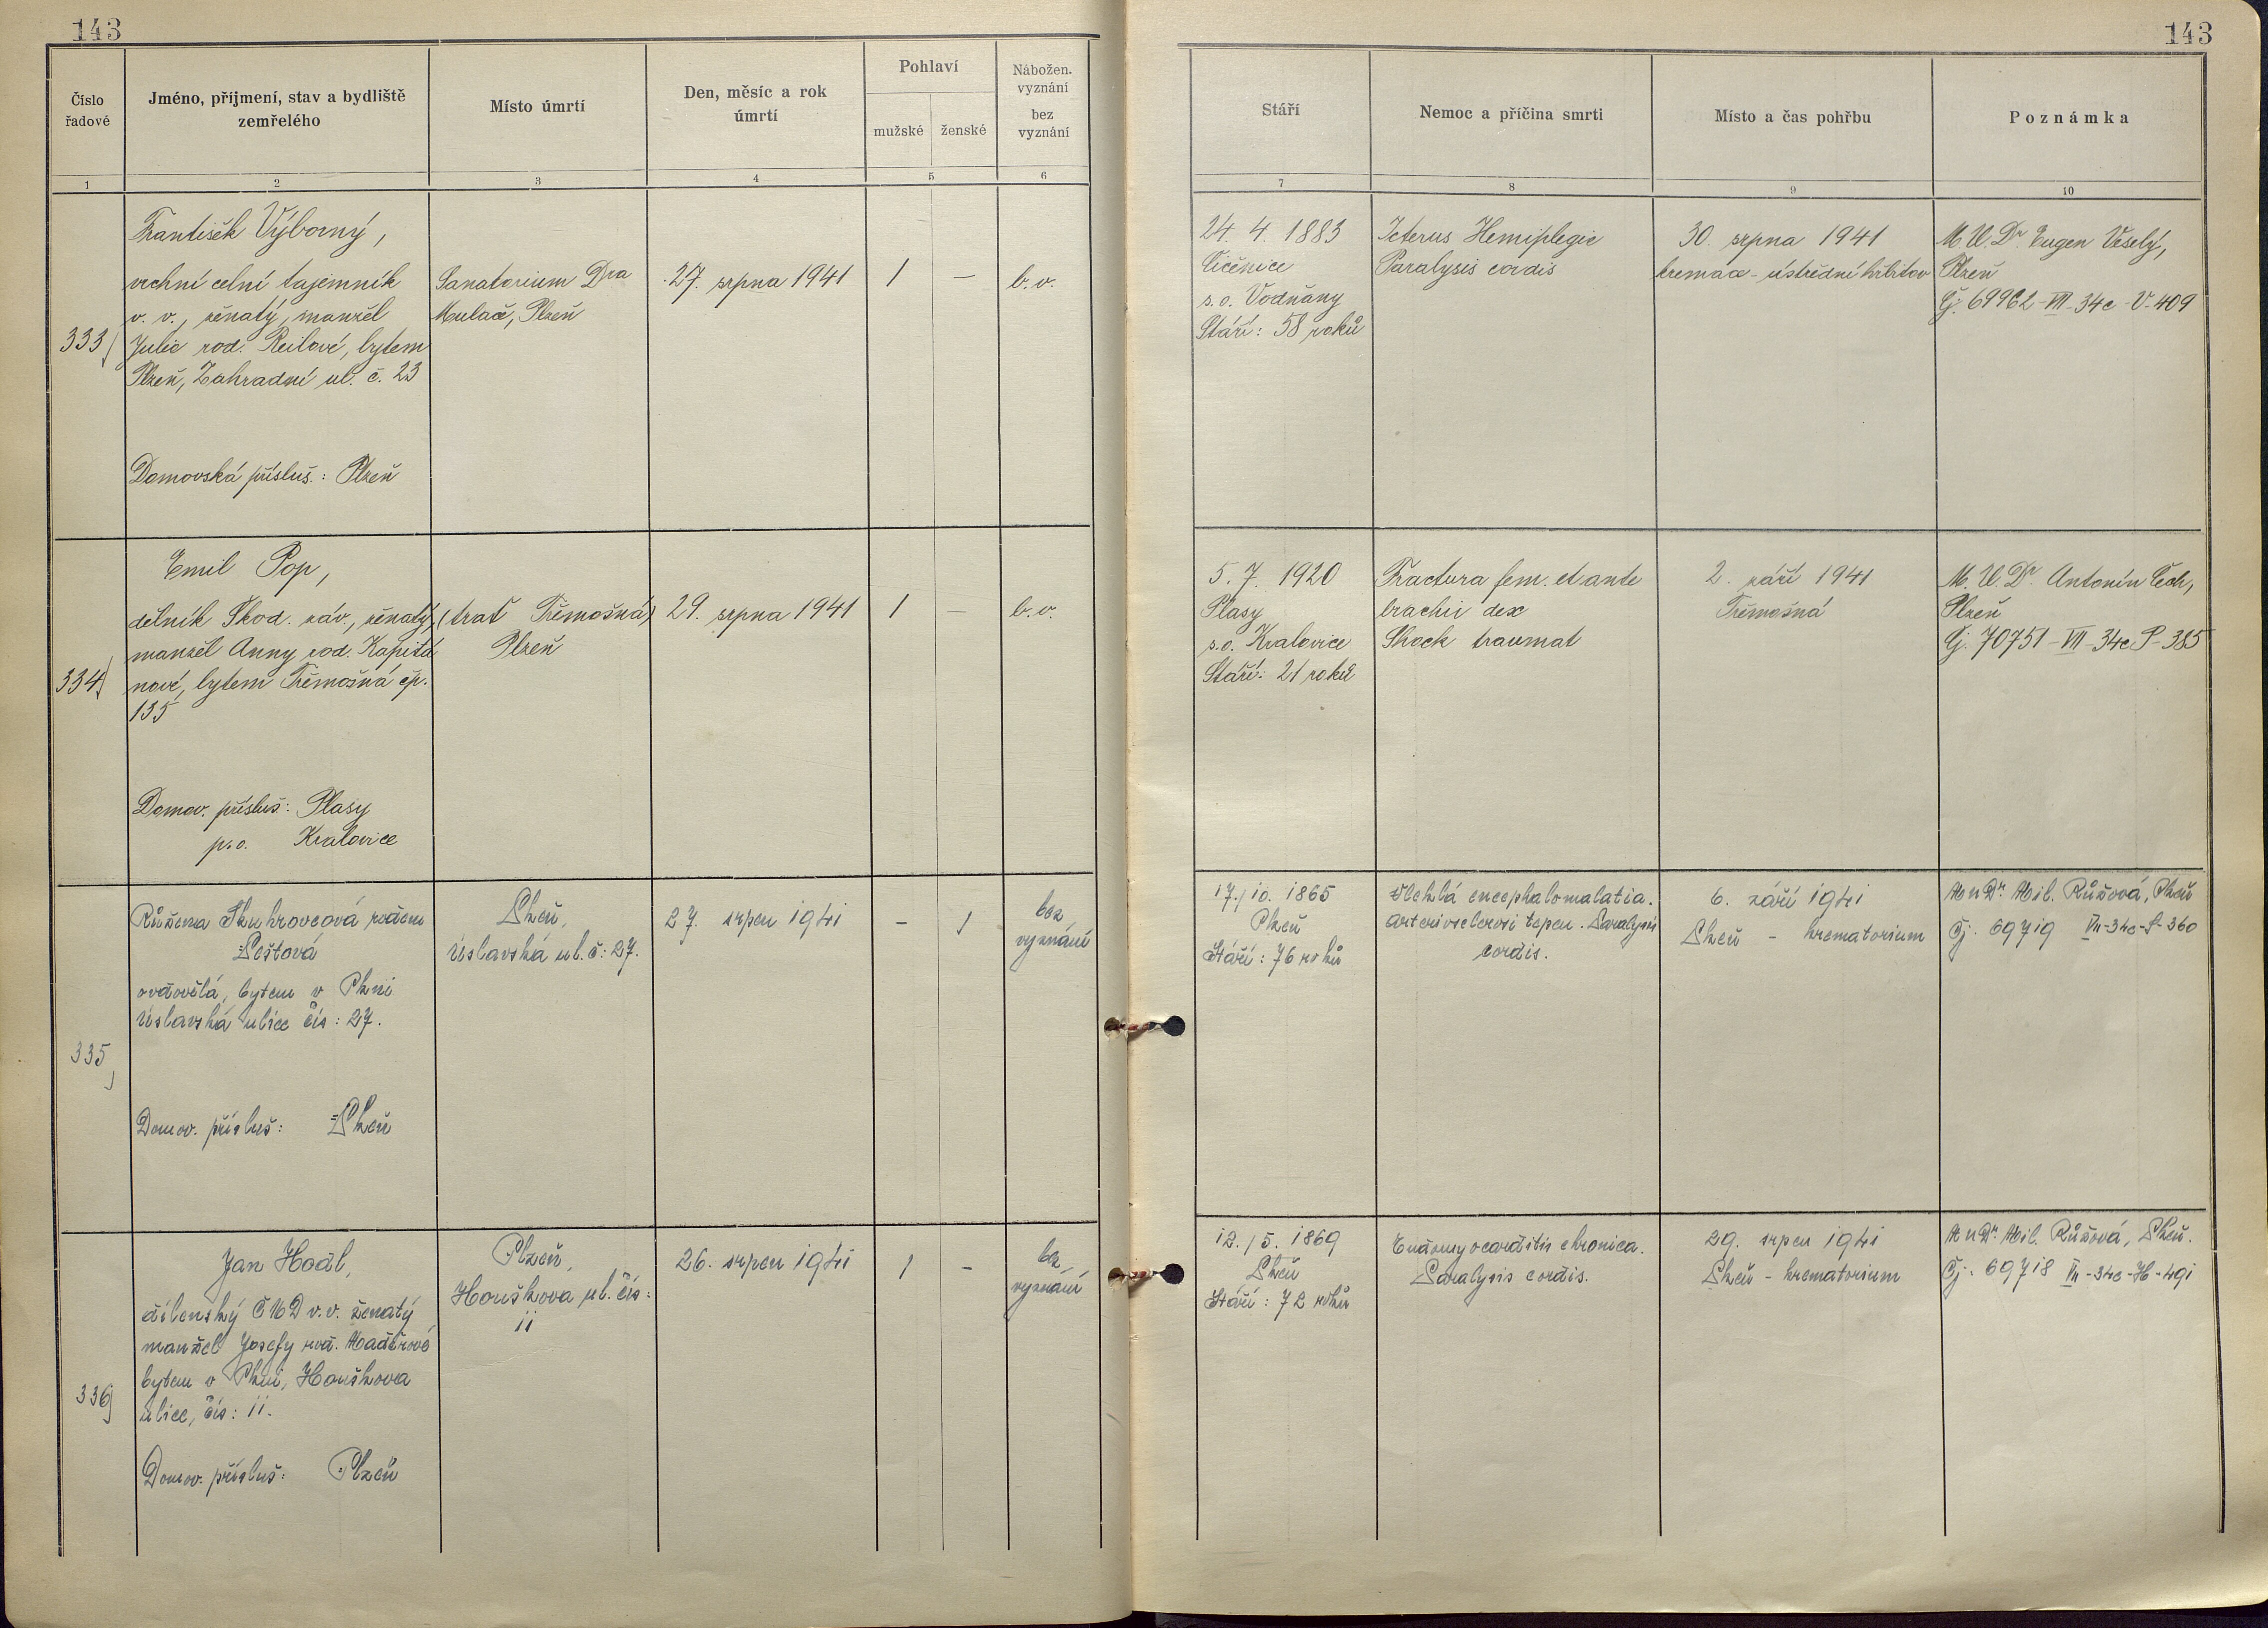 143
143
Číslo řadové
Jméno, příjmení, stav a bydliště zemřelého
Místo úmrtí
Den, měsíc a rok úmrtí
Pohlaví
mužské
ženské
Nábožen. vyznání
bez vyznání
Stáří
Nemoc a příčina smrti
Místo a čas pohřbu
Poznámka
1
2
3
4
5
6
7
8
9
10
333
František Výborný,
vrchní celní tajemník
v. v., ženatý, manžel
Julie roz. Reilové, bytem
Plzeň, Zahradní ul. č. 23
Domovská přísluš.: Plzeň
Sanatorium Dra
Mulače, Plzeň
27. srpna 1941
1
—
b. v.
24. 4. 1883
Čičenice
s. o. Vodňany
Stáří: 58 roků
Icterus Hemiplegie
Paralysis cordis
30. srpna 1941
kremace - ústřední hřbitov
M.U.Dr. Eugen Veselý,
Plzeň
Čj. 69962-VII-34c-V-409
334
Emil Pop,
dělník Škod. záv., ženatý,
manžel Anny rod. Kapitá
nové, bytem Třemošná čp.
135
Domov. přísluš.: Plasy
p. o. Kralovice
(trať Třemošná)
Plzeň
29. srpna 1941
1
—
b. v.
5. 7. 1920
Plasy
s. o. Kralovice
Stáří: 21 roků
Fractura fem. et ante
brachii dex
Shock traumat
2. září 1941
Třemošná
M.U.Dr. Antonín Čech,
Plzeň
Čj. 70751-VII-34c P-385
335
Růžena Skuhrovcová rozen
Šestová
ovdovělá, bytem v Plzni
Úslavská ulice čís: 27.
Domov. přísluš: Plzeň
Plzeň,
Úslavská ul. č: 27.
27. srpen 1941
–
1
bez
vyznání
17./10. 1865
Plzeň
Stáří: 76 roků
Vlehlá encephalomalatia.
arteriosclerosi tepen. Paralysis
cordis.
6. září 1941
Plzeň - krematorium
MuDr. Mil. Růžová, Plzeň
Čj. 69719 VII-34c-S-360
336
Jan Hodl,
dílenský ČMD v.v. ženatý
manžel Josefy roz. Maděrové
bytem v Plzni, Houškova
ulice, čís: 11.
Domov. přísluš: Plzeň
Plzeň,
Houškova ul. čís:
11
26. srpen 1941
1
–
bez
vyznání
12./5. 1869
Plzeň
Stáří: 72 roků
Endomyocarditis chronica.
Paralysis cordis.
29. srpen 1941
Plzeň - krematorium
MuDr. Mil. Růžová, Plzeň.
Čj. 69718 VII-34c-H-491